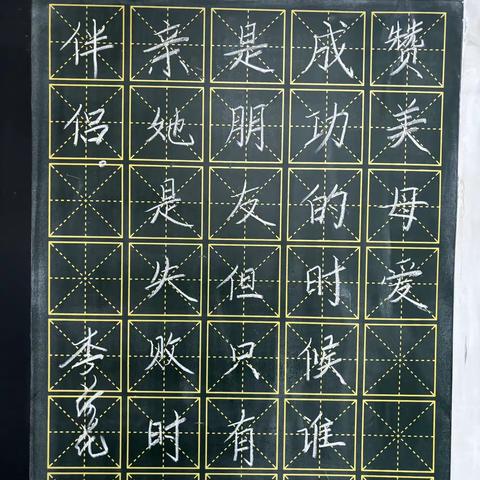 赞美母爱
成功的时候谁
是朋友但只有
亲她是失败时
伴侣。
李